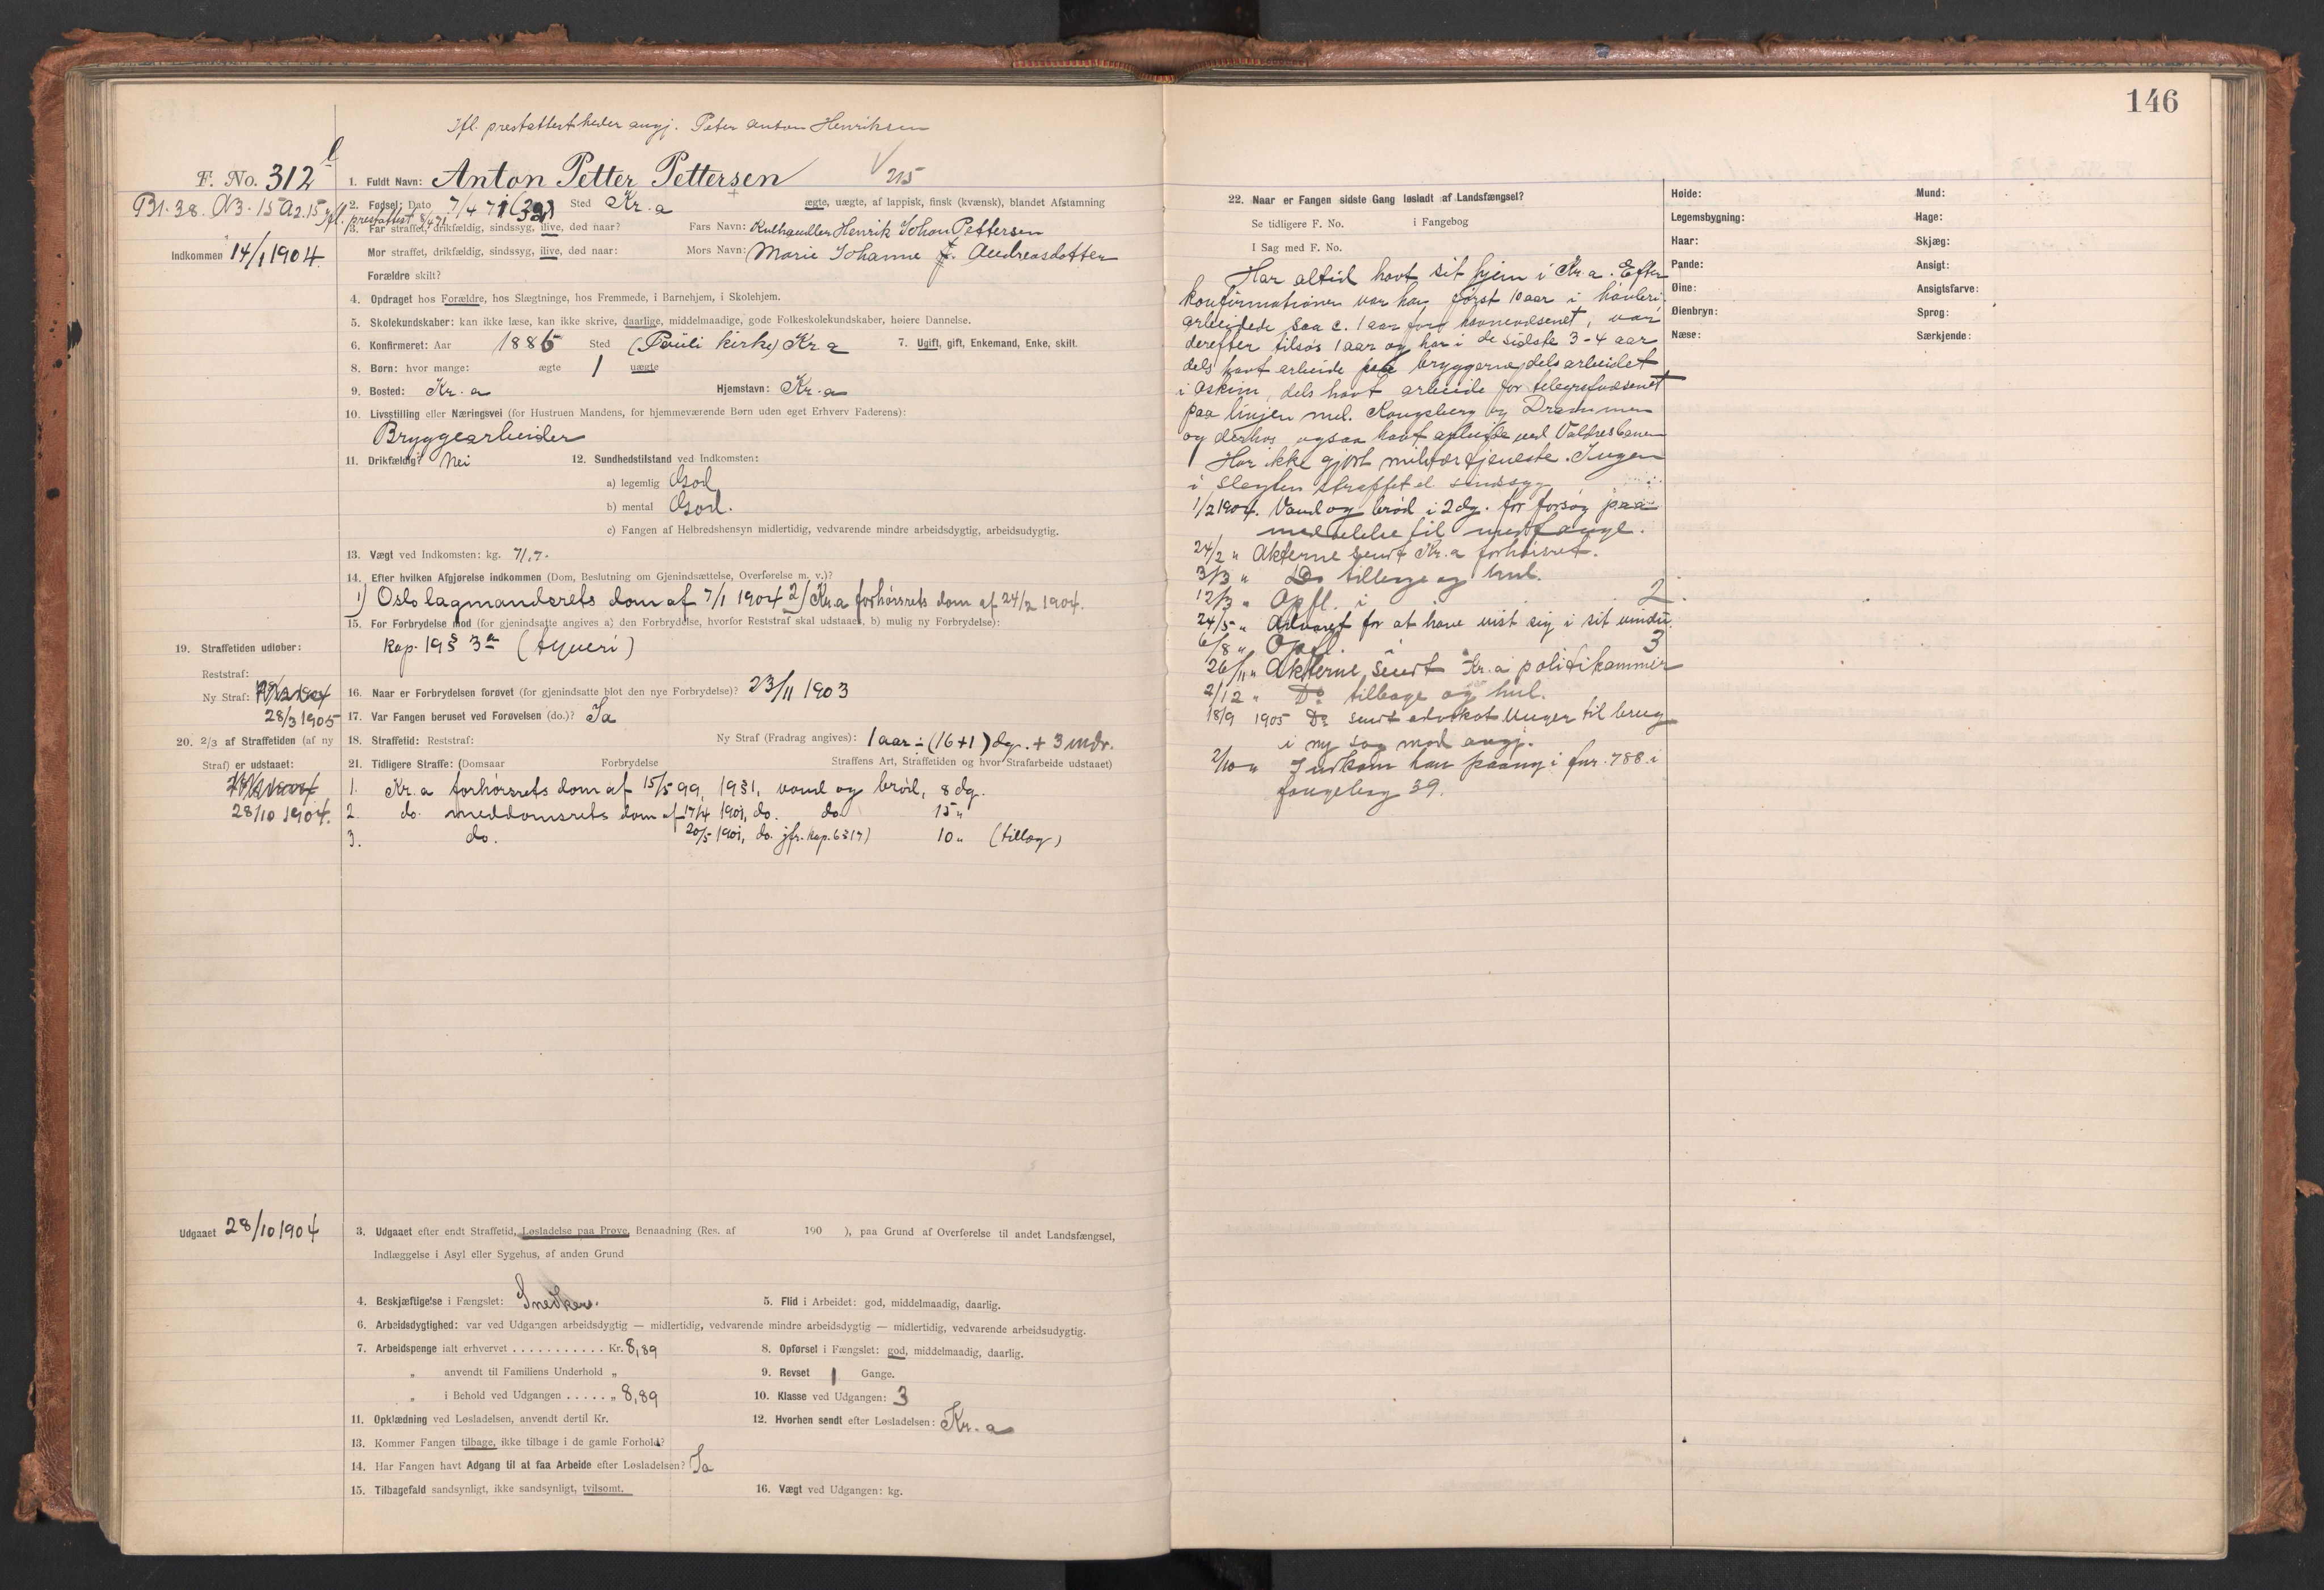 146
Ifl. prestattest heder angj. Peter Anton Henriksen
F. No. 312
1. Fuldt Navn: Anton Petter Pettersen
215
Bl. 38. N3. 15 A2. 15
2. Fødsel: Dato 7/4 71 (32) Sted Kr.a ægte, uægte, af lappisk, finsk (kvænsk), blandet Afstamning
Ifl. prestattest 8/4 71
3. Far straffet, drikfældig, sindssyg, ilive, død naar? Fars Navn: Kulhandler Henrik Johan Pettersen
Indkommen 14/1 1904.
Mor straffet, drikfældig, sindssyg, ilive, død naar: Mors Navn: Marie Johanne f. Andreasdatter
Forældre skilt?
4. Opdraget hos Forældre, hos Slægtninge, hos Fremmede, i Barnehjem, i Skolehjem.
5. Skolekundskaber: kan ikke læse, kan ikke skrive, daarlige, middelmaadige, gode Folkeskolekundskaber, høiere Dannelse.
6. Konfirmeret: Aar 1886 Sted (Pauli kirke) Kr.a 7. Ugift, gift, Enkemand, Enke, skilt.
8. Børn: hvor mange: ægte 1 uægte
9. Bosted: Kr.a Hjemstavn: Kr.a
10. Livsstilling eller Næringsvei (for Hustruen Mandens, for hjemmeværende Børn uden eget Erhverv Faderens):
Bryggearbeider
11. Drikfældig? Nei 12. Sundhedstilstand ved Indkomsten:
a) legemlig God
b) mental God.
c) Fangen af Helbredshensyn midlertidig, vedvarende mindre arbeidsdygtig, arbeidsudygtig.
13. Vægt ved Indkomsten: kg. 71,7.
14. Efter hvilken Afgjørelse indkommen (Dom, Beslutning om Gjenindsættelse, Overførelse m. v.)?
1) Oslo lagmandsrets dom af 7/1 1904 2) Kr.a forhørsrets dom af 24/2 1904.
15. For Forbrydelse mod (for gjenindsatte angives a) den Forbrydelse, hvorfor Reststraf skal udstaaes, b) mulig ny Forbrydelse):
kap. 19 § 3 a (tyveri)
19. Straffetiden udløber:
Reststraf:
Ny Straf:
28/3 1905
16. Naar er Forbrydelsen forøvet (for gjenindsatte blot den nye Forbrydelse)? 23/11 1903
17. Var Fangen beruset ved Forøvelsen (do.)? Ja
20. 2/3 af Straffetiden (af ny
Straf) er udstaaet:
28/10 1904.
18. Straffetid: Reststraf: Ny Straf (Fradrag angives): 1 aar ÷ (16+1) dg. + 3 mdr.
21. Tidligere Straffe: (Domsaar Forbrydelse Straffens Art, Straffetiden og hvor Strafarbeide udstaaet)
1. Kr.a forhørsrets dom af 15/5 99, 19§1, vand og brød, 8 dg.
2. do. meddomsrets dom af 17/4 1901, do. do 15 "
3. do. 20/5 1901, do. jfr. kap. 6 § 17) 10 " (tillæg)
Udgaaet 28/10 1904
3. Udgaaet efter endt Straffetid, Løsladelse paa Prøve, Benaadning (Res. af 190 ), paa Grund af Overførelse til andet Landsfængsel,
Indlæggelse i Asyl eller Sygehus, af anden Grund
4. Beskjæftigelse i Fængslet: Snedker. 5. Flid i Arbeidet: god, middelmaadig, daarlig.
6. Arbeidsdygtighed: var ved Udgangen arbeidsdygtig — midlertidig, vedvarende mindre arbeidsdygtig — midlertidig, vedvarende arbeidsudygtig.
7. Arbeidspenge ialt erhvervet . . . . . . . . . . . Kr. 8,89 8. Opførsel i Fængslet: god, middelmaadig, daarlig.
" anvendt til Familiens Underhold " 9. Revset 1 Gange.
" i Behold ved Udgangen . . . . . " 8,89 10. Klasse ved Udgangen: 3
11. Opklædning ved Løsladelsen, anvendt dertil Kr. 12. Hvorhen sendt efter Løsladelsen: Kr.a
13. Kommer Fangen tilbage, ikke tilbage i de gamle Forhold?
14. Har Fangen havt Adgang til at faa Arbeide efter Løsladelsen? Ja
15. Tilbagefald sandsynligt, ikke sandsynligt, tvilsomt. 16. Vægt ved Udgangen: kg.
22. Naar er Fangen sidste Gang løsladt af Landsfængsel?
Se tidligere F. No. i Fangebog
I Sag med F. No.
Har altid havt sit hjem i Kr.a. Efter
konfirmationen var han først 10 aar i
arbeidede saa c. 1 aar for havnevæsenet, var
derefter tilsøs 1 aar og har i de sidste 3-4 aar
dels havt arbeide paa bryggerne, dels arbeidet
i Askim, dels havt arbeide for telegrafvæsenet
paa linjen mel. Kongsberg og Drammen
og derhos ogsaa havt arbeide ved Valdresbanen
Har ikke gjort militærtjeneste. Ingen
i slegten straffet el. sindssyg.
1/2 1904. Vand og brød i 2 dg. for forsøg paa
meddelelse til medfange.
24/2 " Akterne sendt Kr.a forhørsret.
3/3 " Do tilbage og hul.
12/3 " Opfl. i 2.
24/5 " Advaret for at have vist sig i sit vindu.
6/8 " Opfl. i 3
26/11 " Akterne sendt Kr.a politikammer
2/12 " Do tilbage og hul.
18/9 1905 Do sendt advokat Unger til brug
i ny sag mod angj.
2/10 " Indkom han paany i fnr. 788 i
fangebog 39.
Høide: Mund:
Legemsbygning: Hage:
Haar: Skjæg:
Pande: Ansigt:
Øine: Ansigtsfarve:
Øienbryn: Sprog:
Næse: Særkjende: